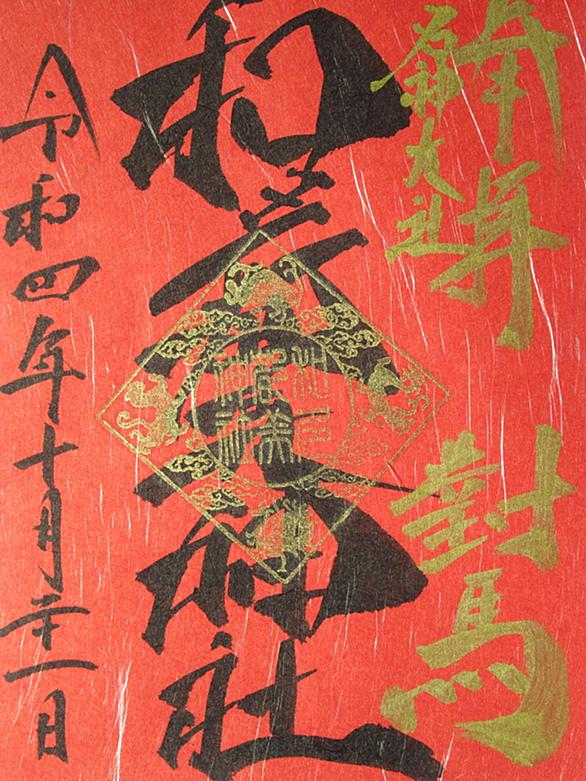 奉拝　對馬
名神大社
和多都美神社
令和四年十月二十一日